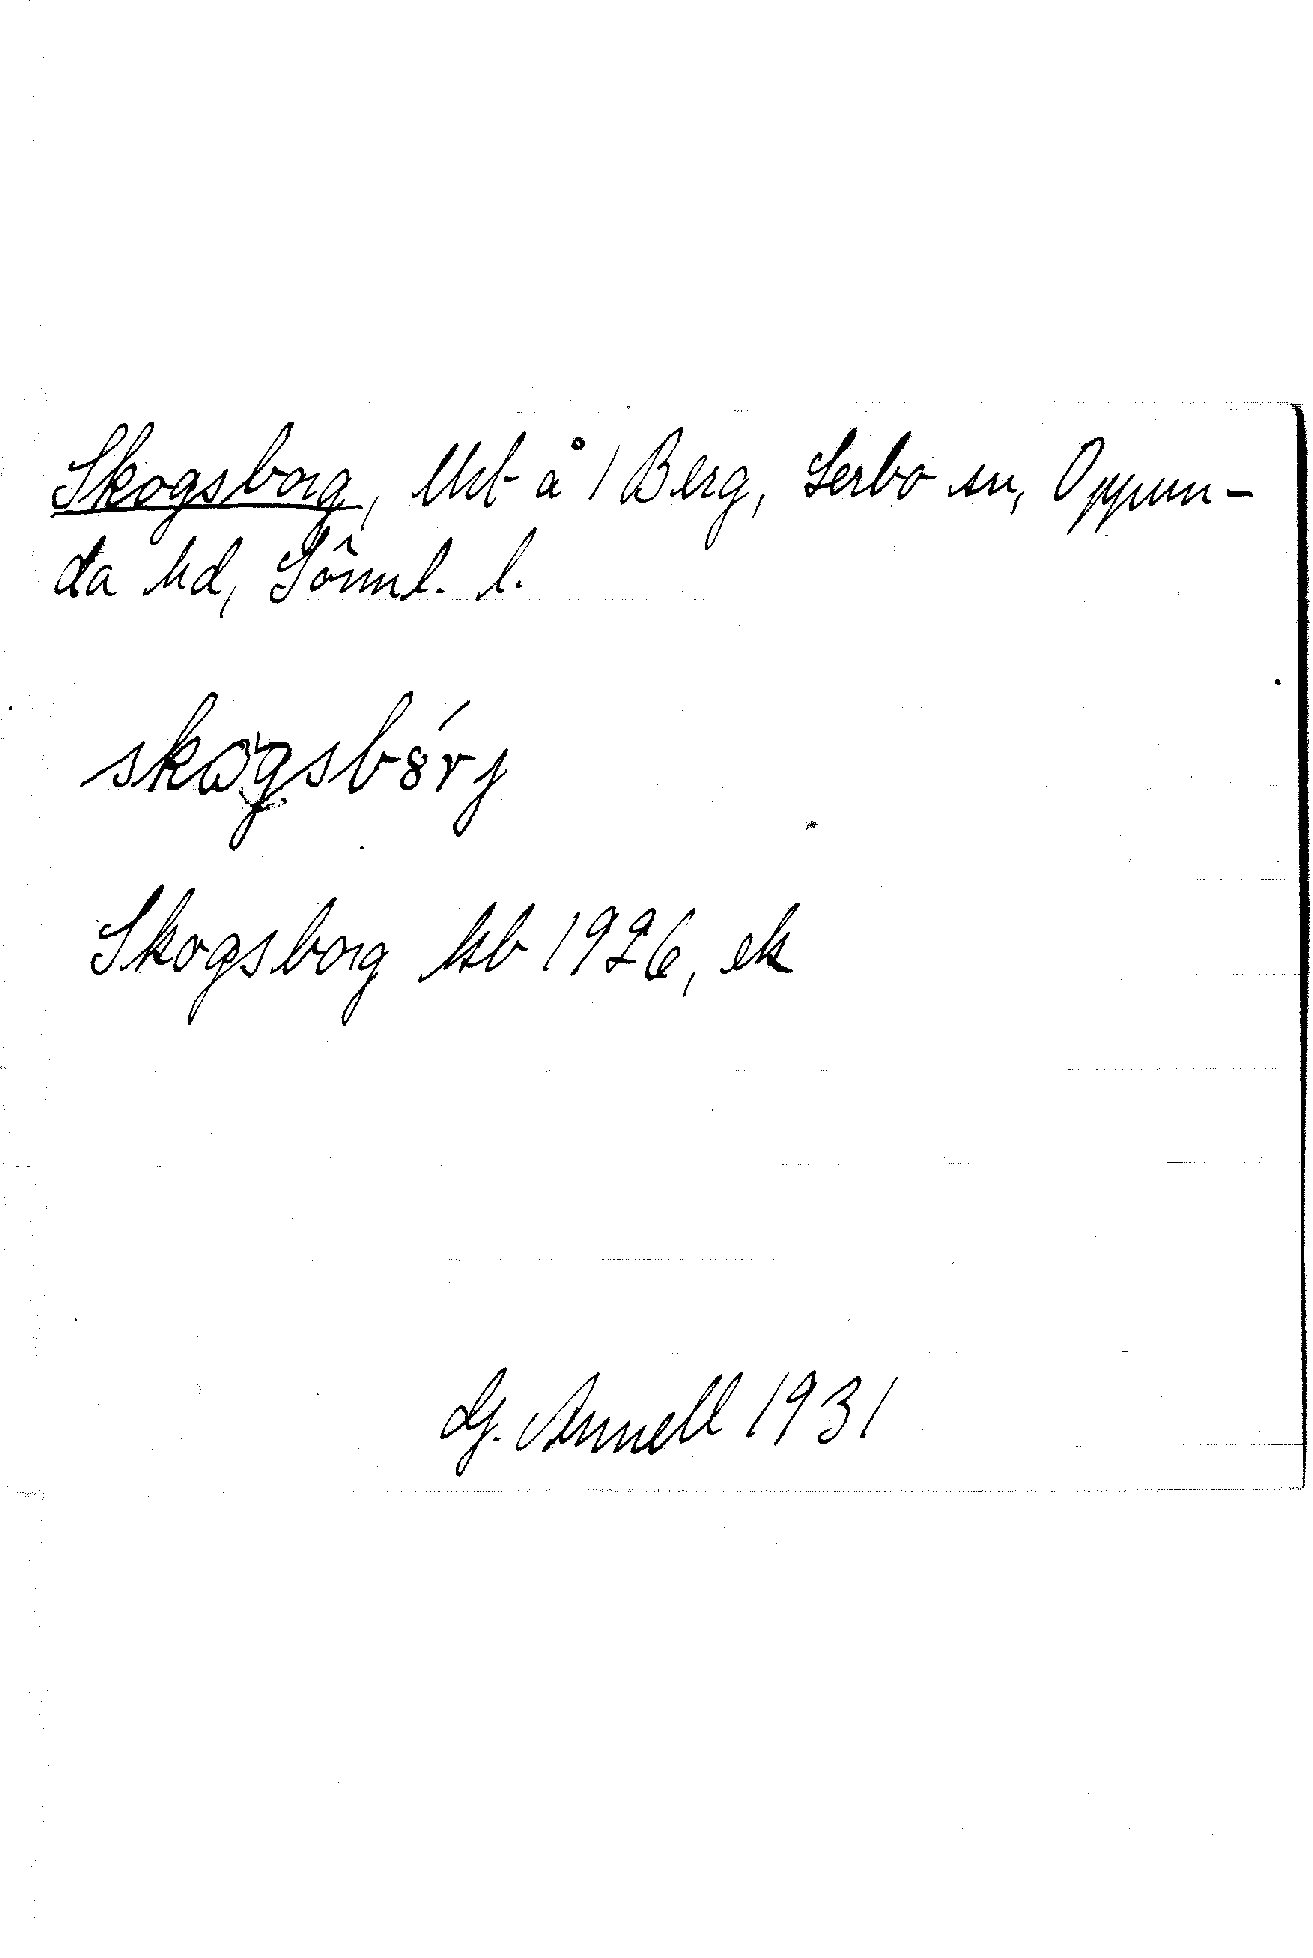 Skogsborg, lht å 1 Berg, Lerbo sn, Oppun-
da hd, Sörml. l.
skogsbórj
Skogsborg hb 1926, ek
G. Annell 1931